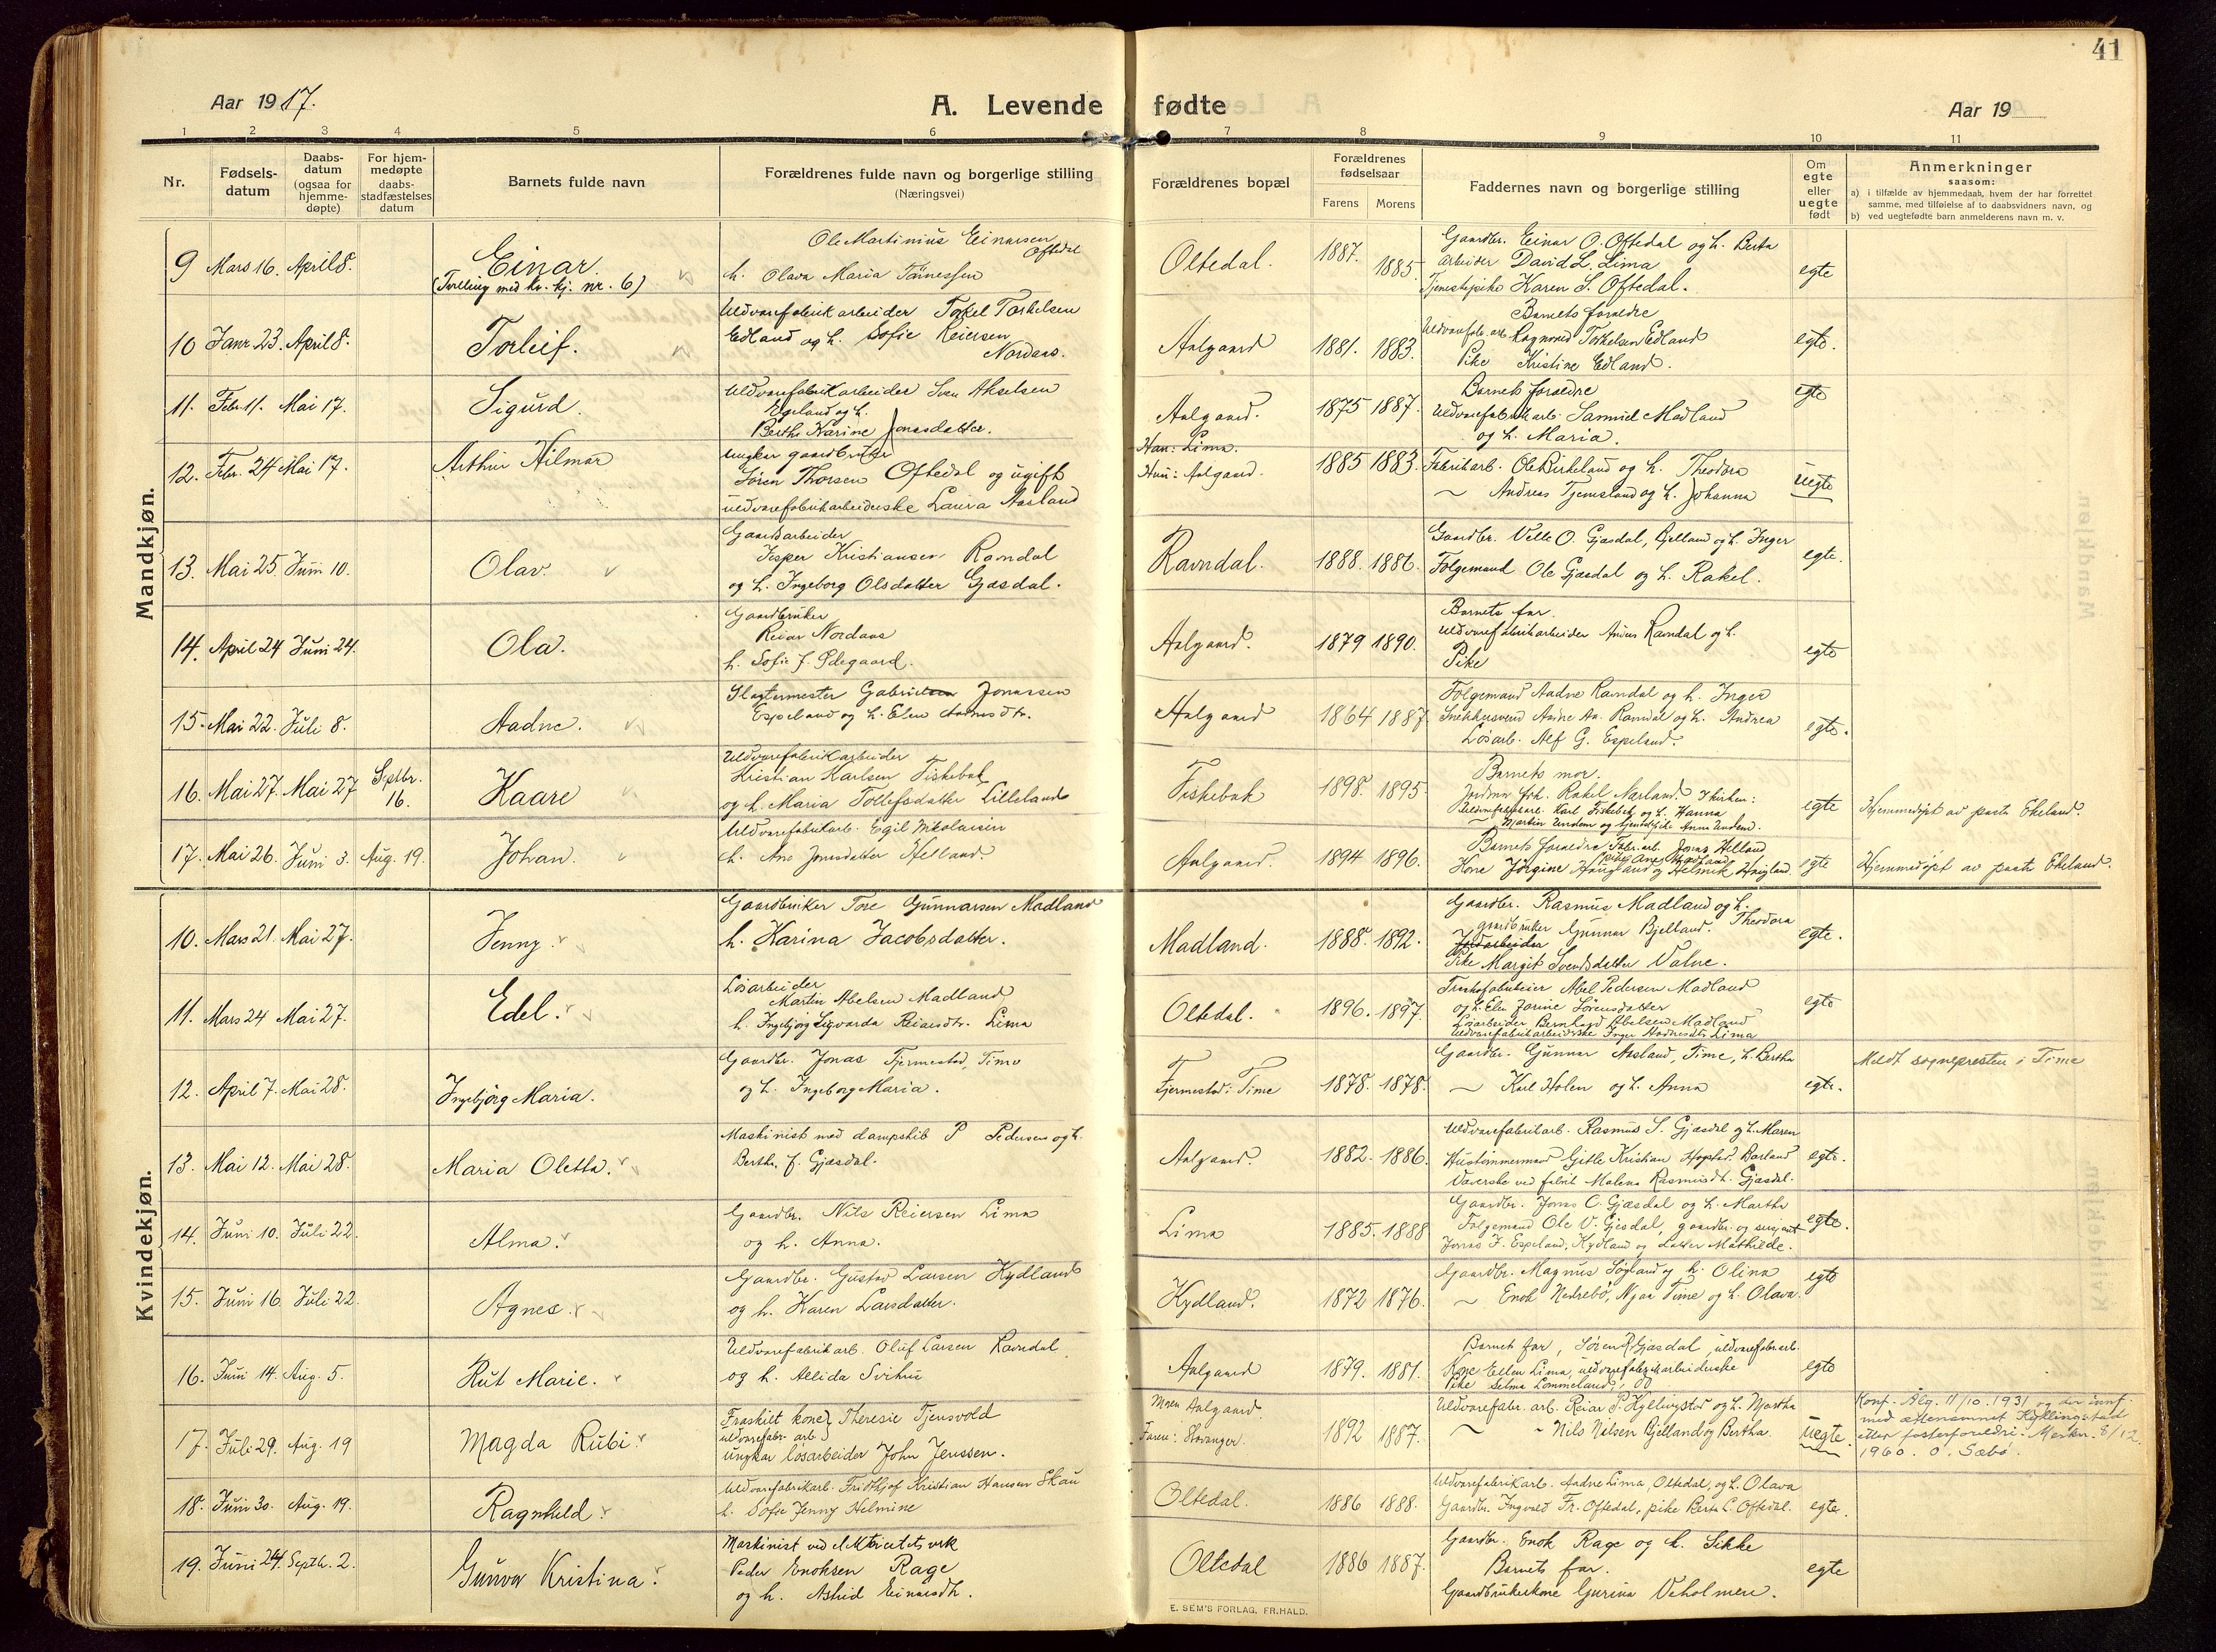 41
Aar 1917.
A. Levende fødte
Aar 19
1 2 3 4 5 6 7 8 9 10 11
Nr.
Fødsels-
datum
Daabs-
datum
(ogsaa for
hjemme-
døpte)
For hjem-
medøpte
daabs-
stadfæstelses
datum
Barnets fulde navn
Forældrenes fulde navn og borgerlige stilling
(Næringsvei)
Forældrenes bopæl
Forældrenes
fødselsaar
Farens Morens
Faddernes navn og borgerlige stilling
Om
egte
eller
uegte
født
Anmerkninger
saasom:
a) i tilfælde av hjemmedaab, hvem der har forrettet
samme, med tilføielse av to daabsvidners navn, og
b) ved uegtefødte barn anmelderens navn m. v.
Mandkjøn.
9 Mars 16. April 8.
Einar
(Tvilling med kv. kj. nr. 6)
Ole Martinius Einarsen
Oftedal
h. Olava Maria
Oltedal. 1887. 1885.
Gaardbr. Einar O. Oftedal og h. Berta
Arbeider David L. Lima
Tjenestepike Karen S. Oftedal.
egte
10 Janr 23. April 8.
Torleif.
Uldvarefabrikarbeider Torkel Torkelsen
Edland og h. Sofie Reiersen
Nordaas.
Aalgaard 1881. 1883.
Barnets forældre
Uldvarefab. arb. Ragnvald Torkelsen Edland
Pike Kristine Edland.
egte.
11. Febr. 11. Mai 17.
Sigurd.
Uldvarefabrikarbeider Sven Akselsen
Egeland og h.
Berthe Karine Jonasdatter.
Aalgaard. 1875 1887.
Barnets forældre
Uldvarefabrikarb. Samuel Madland
og h. Maria.
egte
12. Febr. 24 Mai 17.
Arthur Hilmar
Ungkar gaardbruker
Søren Thorsen Oftedal og ugift
uldvarefabrikarbeiderske Laura Aasland
Han: Lima.
Hun: Aalgaard.
1885 1883.
Fabrikarb. Ole Birkeland og h. Theodora
~ Andreas Tjemsland og h. Johanna
uegte
13. Mai 25. Juni 10.
Olav.
Gaardsarbeider
Jesper Kristiansen Ravndal
og h. Ingeborg Olsdatter Gjesdal.
Ravndal. 1888. 1886.
Gaardbr. Velle O. Gjesdal, og h. Inger
Følgemand Ole Gjesdal og h. Rakel.
egte.
14. April 24 Juni 24.
Ola.
Gaardbruker
Reiar Nordaas
h. Sofie J. Ødegaard.
Aalgaard. 1879 1890.
Barnets far.
Uldvarefabrikarbeider Ravndal og h.
Pike
egte
15. Mai 22. Juli 8.
Aadne.
Slagtermester Gabriel Jonassen
Espeland og h. Elen
Aalgaard 1864 1887
Følgemand Aadne Ravndal og h. Inger
Snekkersvend Ravndal og h. Andrea
Løsarb. Alf G. Espeland.
egte.
16. Mai 27. Mai 27 Septbr. 16.
Kaare
Uldvarefabrikarbeider
Kristian Karlsen Fiskebæk
og h. Maria Tollefsdatter Lilleland
Fiskebæk 1898. 1895
Barnets mor.
Jordmor Rakel Aarland. I kirken:
Uldvarefabrikarb. Karl Fiskebæk og h. Hanna
~ Martin Undem og tjenestepike Anna Undem.
egte
Hjemmedøpt av pastor Ekeland.
17. Mai 26. Juni 3. Aug. 19.
Johan.
Uldvarefabrikarb. Egil Nikolaisen
h. Ane Jonasdatter Helland.
Aalgaard. 1894 1896.
Barnets forældre Fabr. arb. Jonas Helland
Kone Jørgine Haugland og Helmik Haugland
egte
Hjemmedøpt av pastor Ekeland.
Kvindekjøn.
10. Mars 21. Mai 27.
Jenny.
Gaardbruker Tore Gunnarsen Madland
h. Karina Jacobsdatter.
Madland. 1888. 1892.
Gaardbr. Rasmus Madland og h.
gaardbruker Gunnar Bjelland. Theodora
Pike Margit Svendsdatter Valve.
egte.
11. Mars 24 Mai 27.
Edel.
Løsarbeider
Martin Abelsen Madland
h. Ingebjørg Sigvarda Reiersdtr. Lima
Oltedal. 1896. 1897.
Abel Pedersen Madland
og h. Elen Jorine Sørensdatter
Løsarbeider Bernhard Abelsen Madland
Uldvarefabrikarbeiderske Inger Lima
egte
12. April 7. Mai 28.
Ingebjørg Maria.
Gaardbr. Jonas Fjermestad, Time
og h. Ingeborg Maria.
Fjermestad: Time 1878. 1878.
Gaardbr. Gunnar Aasland, Time, h. Bertha
~ Karl Holen og h. Anna
egte.
Meldt sognepresten i Time
13. Mai 12. Mai 28.
Maria Oletta.
Maskinist med dampskib P Pedersen og h.
Berthe J. Gjesdal.
Aalgaard. 1882. 1886.
Uldvarefabrikarb. Rasmus S. Gjesdal og h. Maren
Hustømmermand Gitle Kristian
Væverske ved fabrik Malena Rasmusdt. Gjesdal.
egte.
14. Juni 10. Juli 22.
Alma.
Gaardbr. Nils Reiersen Lima
og h. Anna.
Lima 1885. 1888
Gaardbr. Jonas O. Gjesdal og h. Martha
Følgemand Ole V. Gjesdal, gaardbr. og sersjant
Jonas J. Espeland, Kydland og datter Mathilde.
egte.
15. Juni 16. Juli 22.
Agnes.
Gaardbr. Gustav Larsen Kydland
og h. Karen Larsdatter.
Kydland. 1872 1876.
Gaardbr. Magnus Søyland og h. Olina
~ Enok Nedrebø, Njaa Time og h. Olava.
egte
16. Juni 14. Aug. 5.
Rut Marie.
Uldvarefabrikarb. Oluf Larsen Ravndal
og h. Allida Svihus
Aalgaard 1879. 1881.
Barnets far, Søren R Gjesdal, uldvarefabr.arb.
Kone Ellen Lima, uldvarefabrikarbeiderske
Pike Selma Lommeland
egte
17. Juli 29. Aug. 19
Magda Rubi.
Fraskilt kone Theresie Tjensvold
uldvarefabr. arb.
ungkar løsarbeider John Jenssen.
Moren Aalgaard.
Faren: Stavanger.
1892 1887.
Uldvarefabr. arb. Reiar P. Kyllingstad og h. Martha
~ ~ Nils Nilsen Bjelland og Bertha.
uegte.
Konf. Ålg. 11/10. 1931 og der innf.
med etternamnet Kyllingstad
etter fosterforeldri. Merkn. 8/12.
1960. O. Sæbø.
18. Juni 30. Aug. 19.
Ragnhild.
Uldvarefabrikarb. Fridthjof Kristian Hansen Skau
h. Sofie Jenny Helmine
Oltedal. 1886 1888.
Uldvarefabrikarb. Aadne Lima, Oltedal, og h. Olava
Gaardbr. Ingvald Fr. Oftedal, pike Berta L. Oftedal.
egte.
19. Juni 24. Septb. 2.
Gunvor Kristina.
Maskinist ved elektricitetsverk
Peder Enoksen Rage
og h. Astrid Einarsdtr.
Oltedal 1886 1887.
Gaardbr. Enok Rage og h. Sikke
Barnets far.
Gaardbrukerkone Gurina Veholmen.
egte
E. SEM'S FORLAG, FR.HALD.